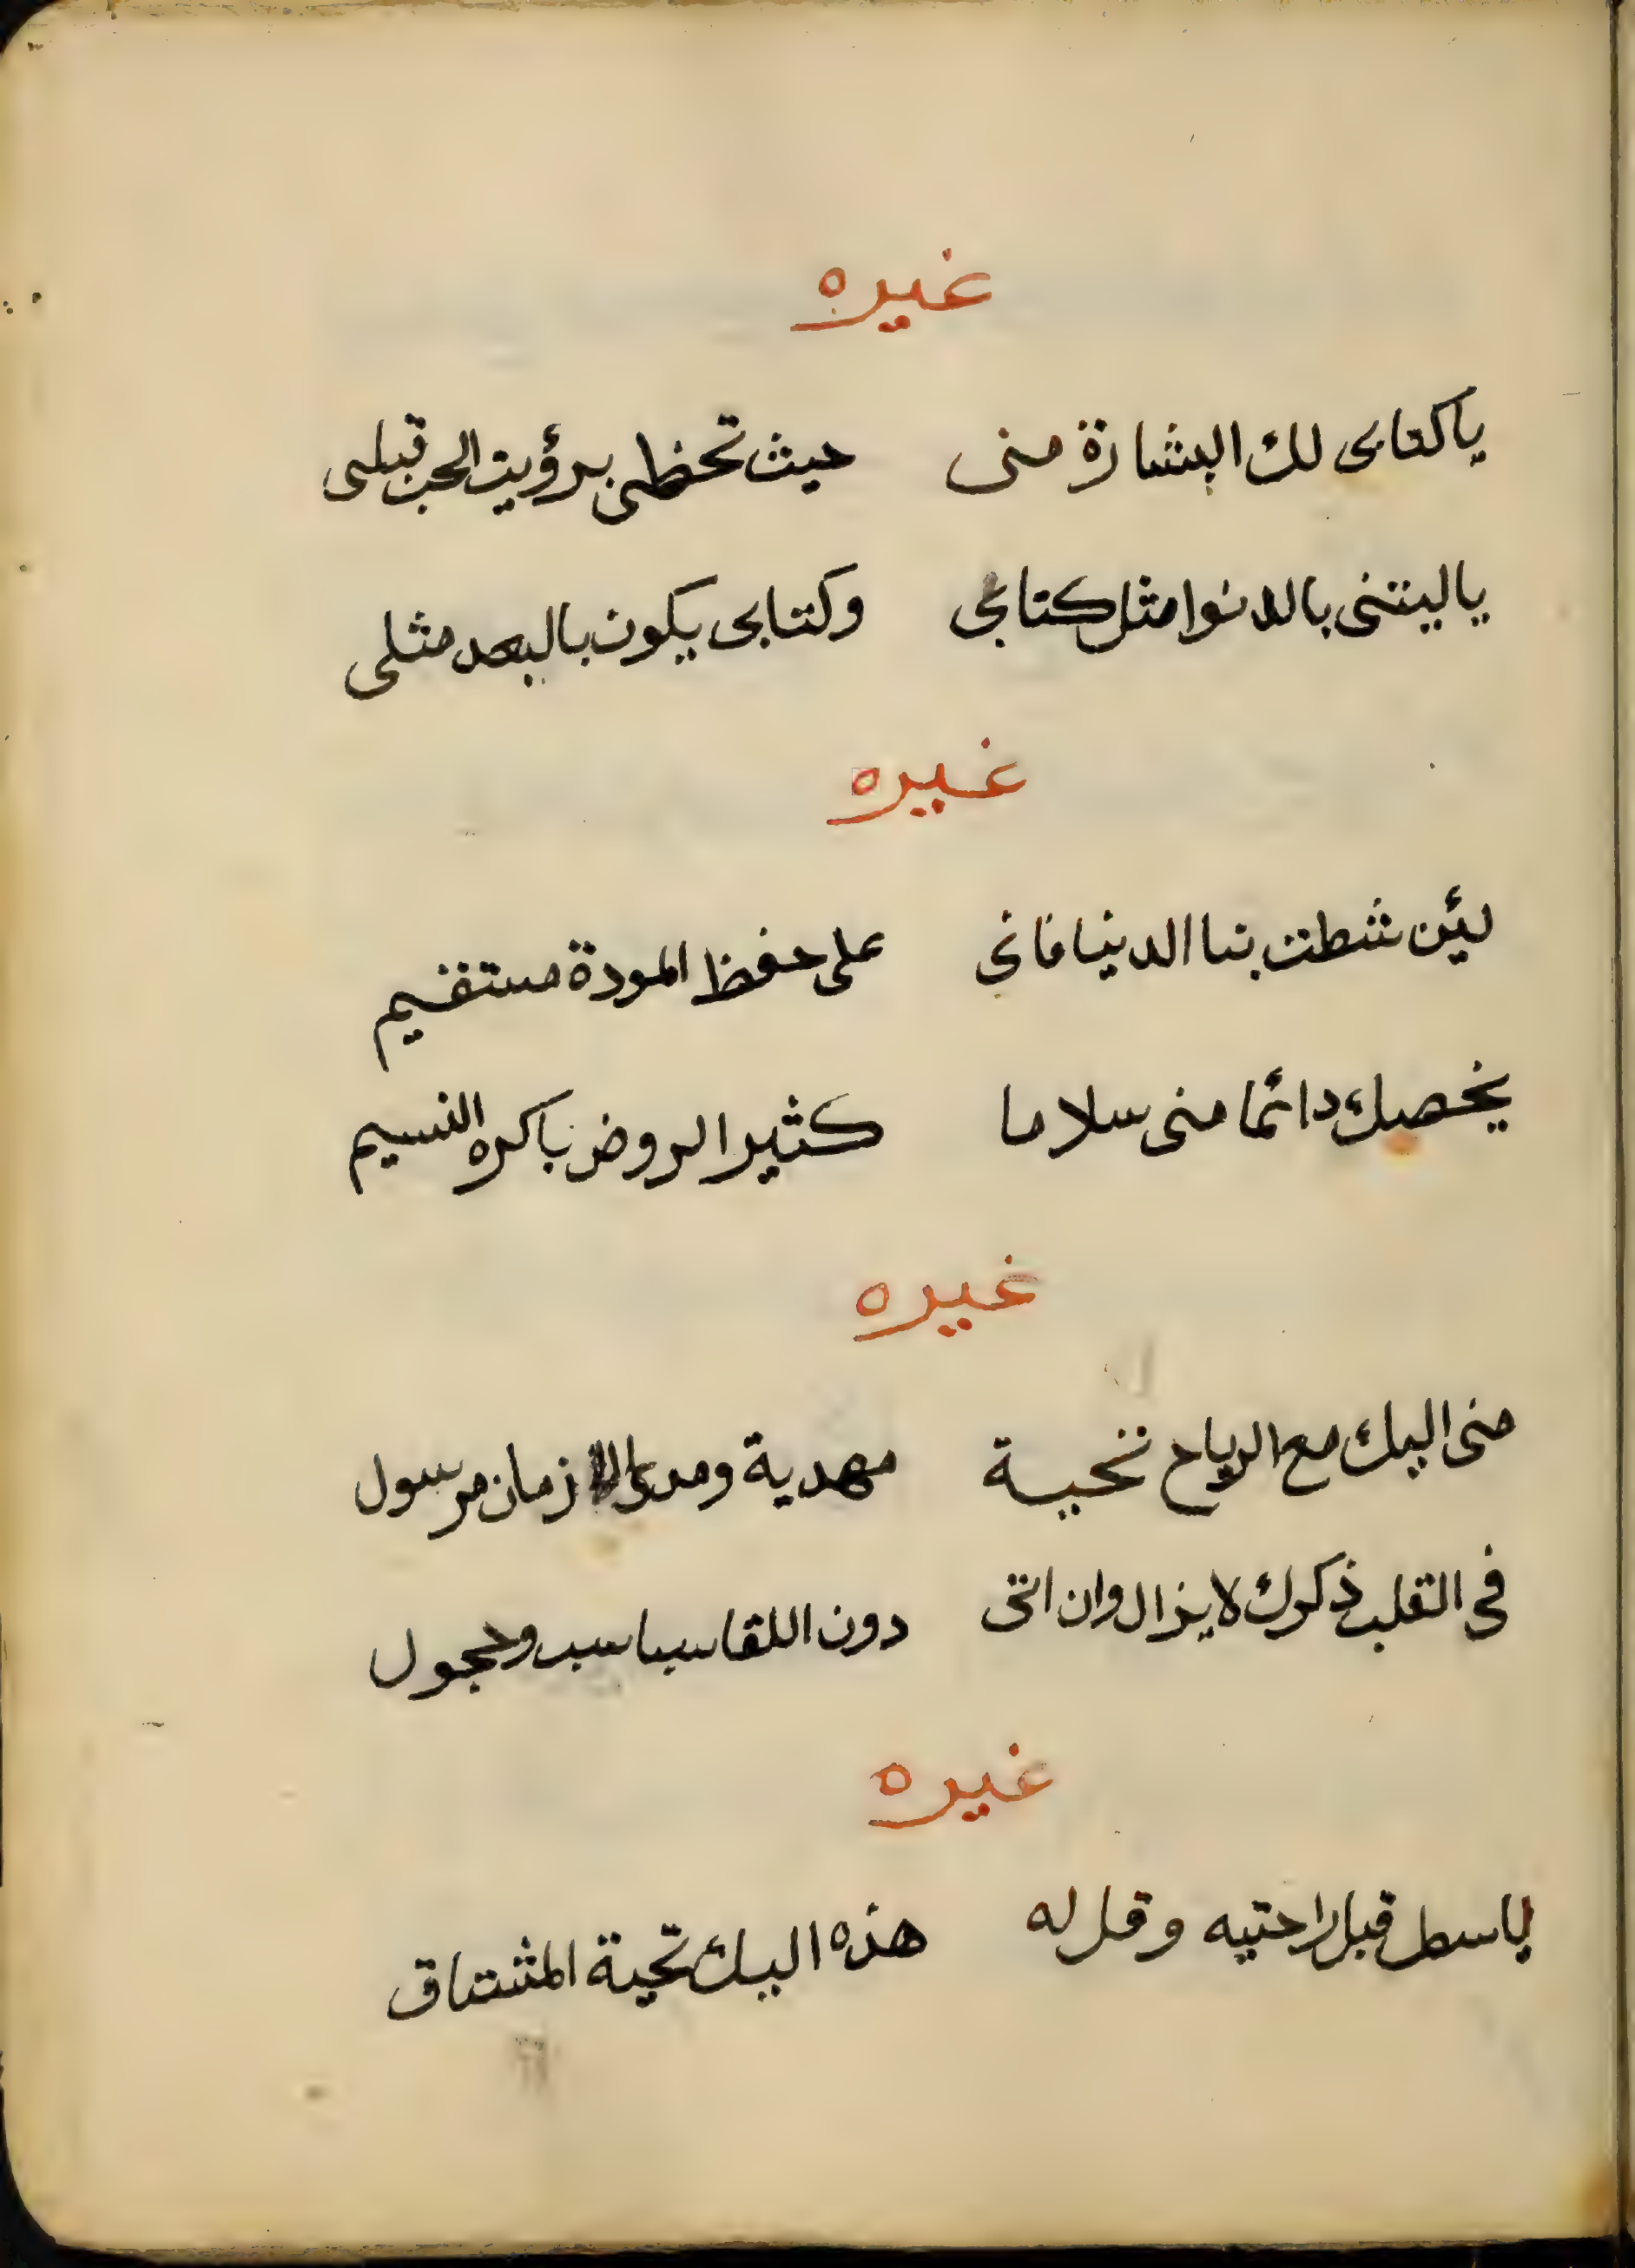 غيره
ياكتابى لك البشارة منى حيث تحظى برؤيت الحب قبلى
ياليتنى بالدنوا مثل كتابي وكتابى يكون بالبعد مثلى
غيره
لئن شطت بنا الدنيا فانى على حفظ المودة مستقيم
يخصك دائما منى سلاما كثير الروض باكره النسيم
غيره
منى اليك مع الرياح تحية مهدية ومدى الازمان رسول
فى القلب ذكرك لا يزال وان اتى دون اللقا سباسب وحجول
غيره
ياسطر قبل راحتيه وقل له هذه اليك تحية المشتاق